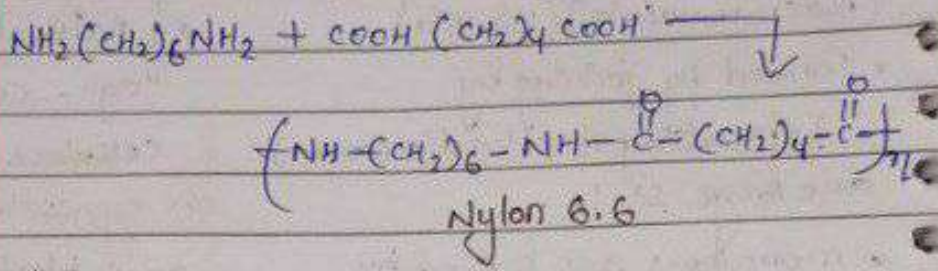 NH2(CH2)6NH2 + COOH (CH2)4 COOH →
(NH-(CH2)6-NH-C(=O)-(CH2)4-C(=O))n
Nylon 6.6